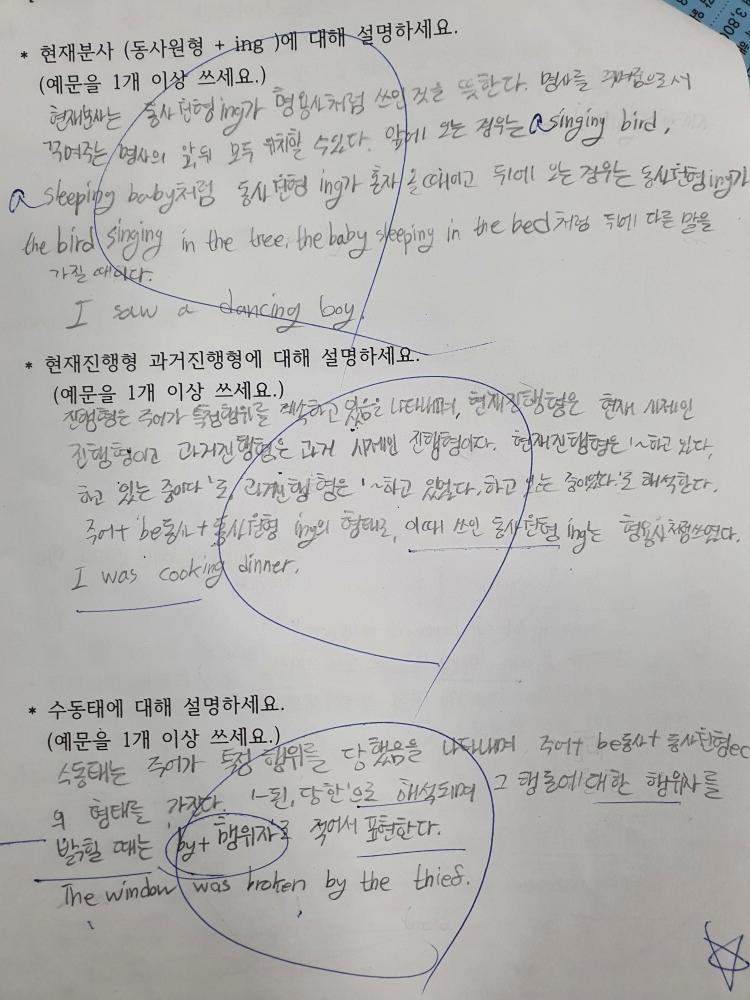 3,80
* 현재분사 (동사원형 + ing )에 대해 설명하세요.
(예문을 1개 이상 쓰세요.)
현재분사는 동사원형 ing가 형용사처럼 쓰인 것을 뜻한다. 명사를 꾸며줌으로서
꾸며주는 명사의 앞, 뒤 모두 위치할 수 있다. 앞에 오는 경우는 a singing bird,
a sleeping baby처럼 동사원형 ing가 혼자 올 때이고 뒤에 오는 경우는 동사원형 ing가
the bird singing in the tree, the baby sleeping in the bed처럼 뒤에 다른 말을
가질 때이다.
I saw a dancing boy.
* 현재진행형 과거진행형에 대해 설명하세요.
(예문을 1개 이상 쓰세요.)
진행형은 주어가 특정행위를 계속하고 있음을 나타내며, 현재진행형은 현재 시제인
진행형이고 과거진행형은 과거 시제인 진행형이다. 현재진행형은 '~하고 있다,
하고 있는 중이다'로, 과거진행형은 '~하고 있었다, 하고 있는 중이었다'로 해석한다.
주어+ be동사 + 동사원형 ing의 형태로, 이때 쓰인 동사원형 ing는 형용사처럼 쓰였다.
I was cooking dinner.
* 수동태에 대해 설명하세요.
(예문을 1개 이상 쓰세요.)
수동태는 주어가 특정 행위를 당했음을 나타내며 주어+ be동사+ 동사원형ed
의 형태를 가진다. '~된, 당한'으로 해석되며 그 행동에 대한 행위자를
밝힐 때는 by+ 행위자'로 적어서 표현한다.
The window was broken by the thief.